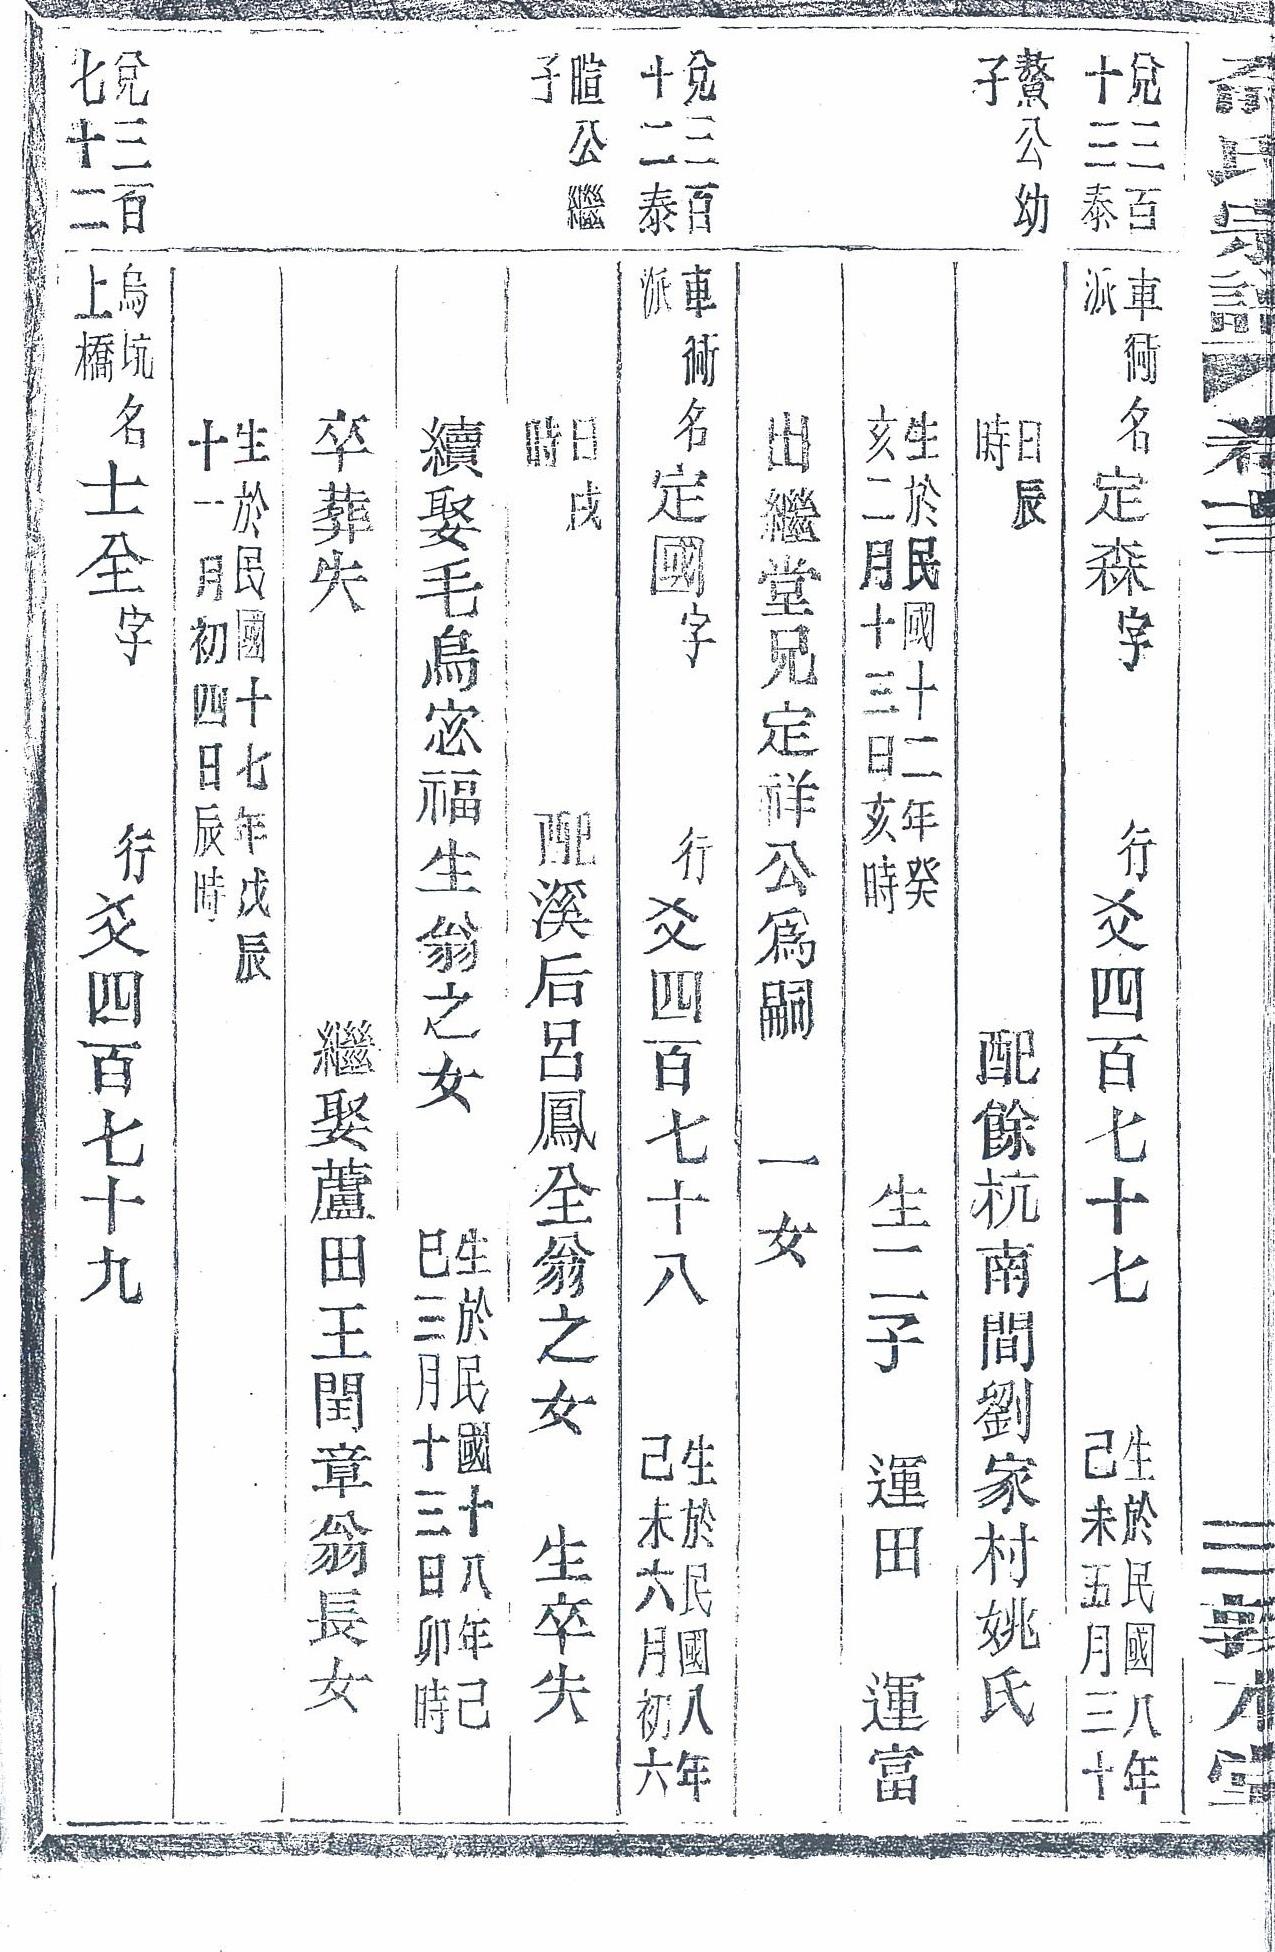 俞氏宗譜 卷三 三 敦本堂
兌三百
十三泰
車衕
派
名定森字 行爻四百七十七
生於民國八年
己未五月三十
贅公幼
子
日辰
時
配餘杭南間劉家村姚氏
生於民國十二年癸
亥二月十三日亥時
生二子 運田 運富
出繼堂兄定祥公爲嗣 一女
兌三百
十二泰
車衕
派
名定國字 行爻四百七十八
生於民國八年
己未六月初六
暄公繼
子
日戌
時
配溪后呂鳳全翁之女 生卒失
續娶毛烏宓福生翁之女
生於民國十八年己
巳三月十三日卯時
卒葬失 繼娶蘆田王閏章翁長女
生於民國十七年戊辰
十一月初四日辰時
兌三百
七十二
烏坑
上橋
名士全字 行爻四百七十九